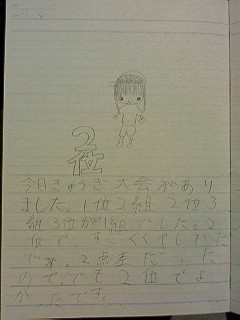 2位
今日きょうぎ大会があり
ました。1位2組 2位3
組3位が1組でした。2
位です くくやしかた
です。2点差だった
ので。でも2位でよ
かったです。